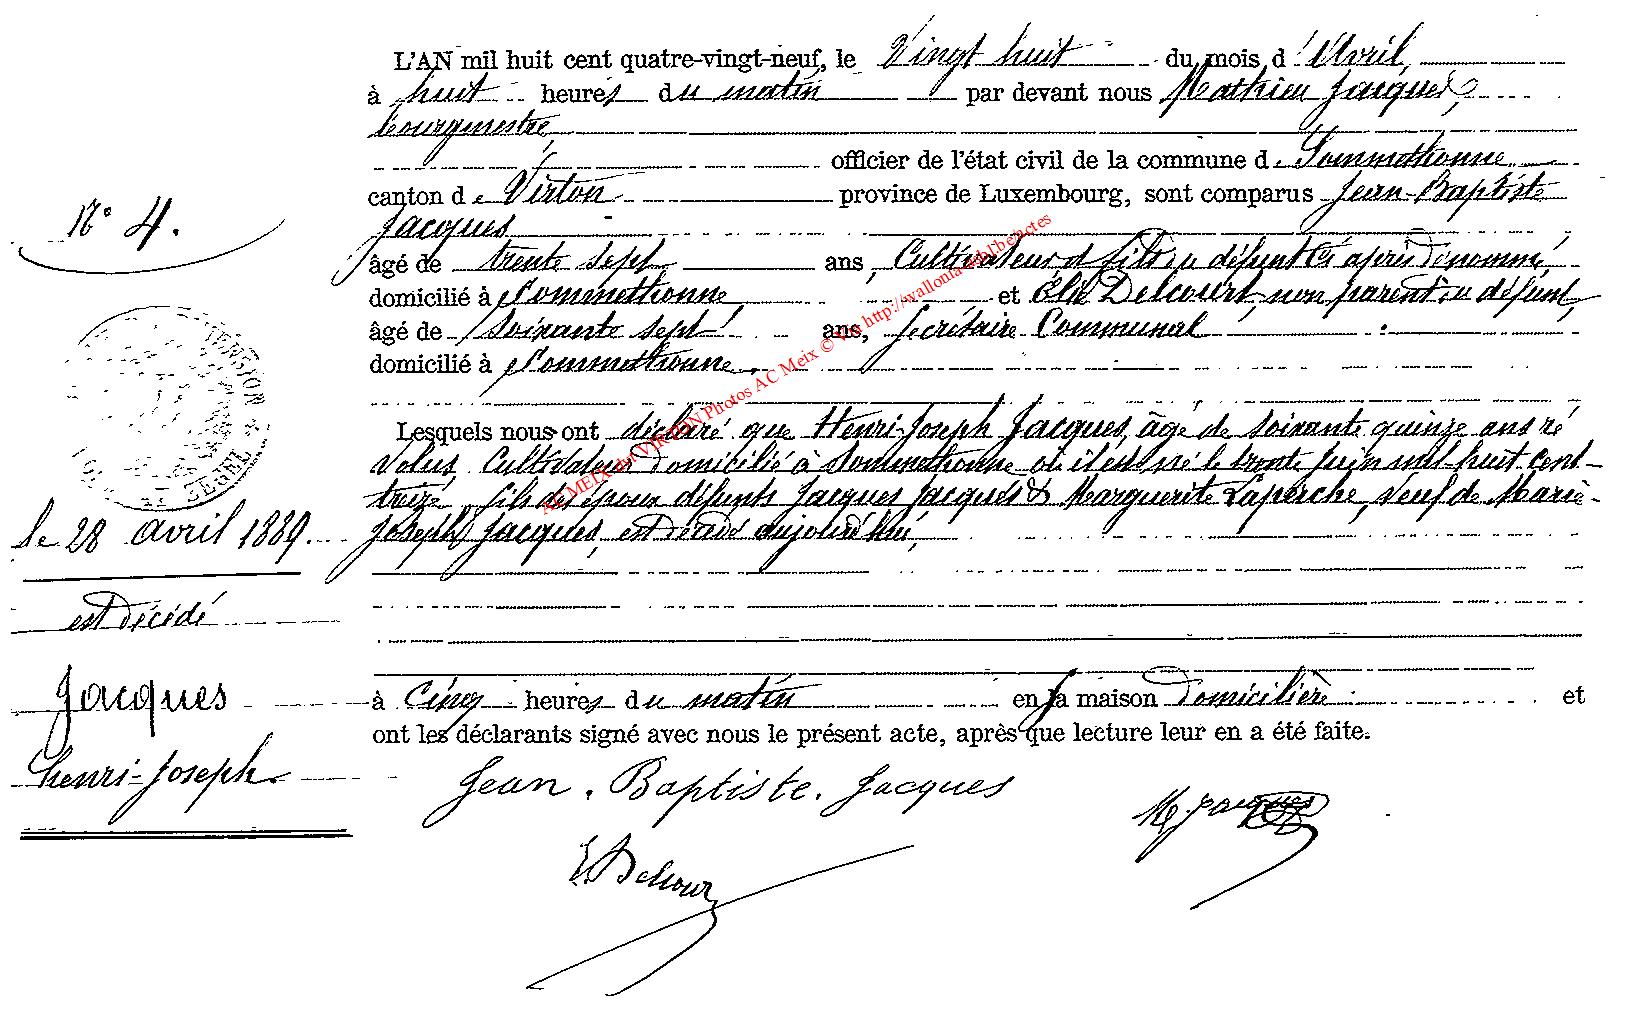 L'AN mil huit cent quatre-vingt-neuf, le Vingt huit du mois d'Avril,
à huit heures du matin par devant nous Mathieu Jacques,
bourgmestre,
officier de l'état civil de la commune de Sommethonne
canton de Virton province de Luxembourg, sont comparus Jean-Baptiste
Jacques
âgé de trente sept ans, Cultivateur, fils du défunt ci après dénommé,
domicilié à Sommethonne et Élie Delcourt, non parent du défunt,
âgé de soixante sept ans, Secrétaire Communal
domicilié à Sommethonne.
Lesquels nous ont déclaré que Henri-Joseph Jacques, âgé de soixante quinze ans ré
volus, Cultivateur, domicilié à Sommethonne où il est né le trente juin mil huit cent
treize, fils des époux défunts Jacques Jacques & Marguerite Laperche, veuf de Marie-
Joseph Jacques, est décédé aujourd'hui,
à Cinq heures du matin en la maison domicilière et
ont les déclarants signé avec nous le présent acte, après que lecture leur en a été faite.
Jean-Baptiste. Jacques
M Jacques
E. Delcour
N° 4.
le 28 avril 1889.
est décédé
Jacques
henri-Joseph.
Photos AC Meix © Via http://wallonia-asbl.be/actes